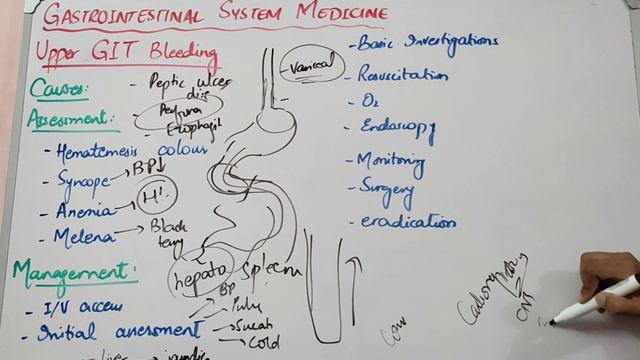 GASTROINTESTINAL SYSTEM MEDICINE
Upper GIT Bleeding
Causes:
- Peptic ulcer
Assessment:
- Hematemesis colour
- Syncope → BP↓
- Anemia → Hb
- Melena → Black
terry
Management:
- I/V access
- Initial assessment
→ BP
→ Pulse
→ Sweat
→ Cold
Variceal
hepato spleen
- Basic Investigations
- Resuscitation
- O2
- Endoscopy
- Monitoring
- Surgery
- eradication